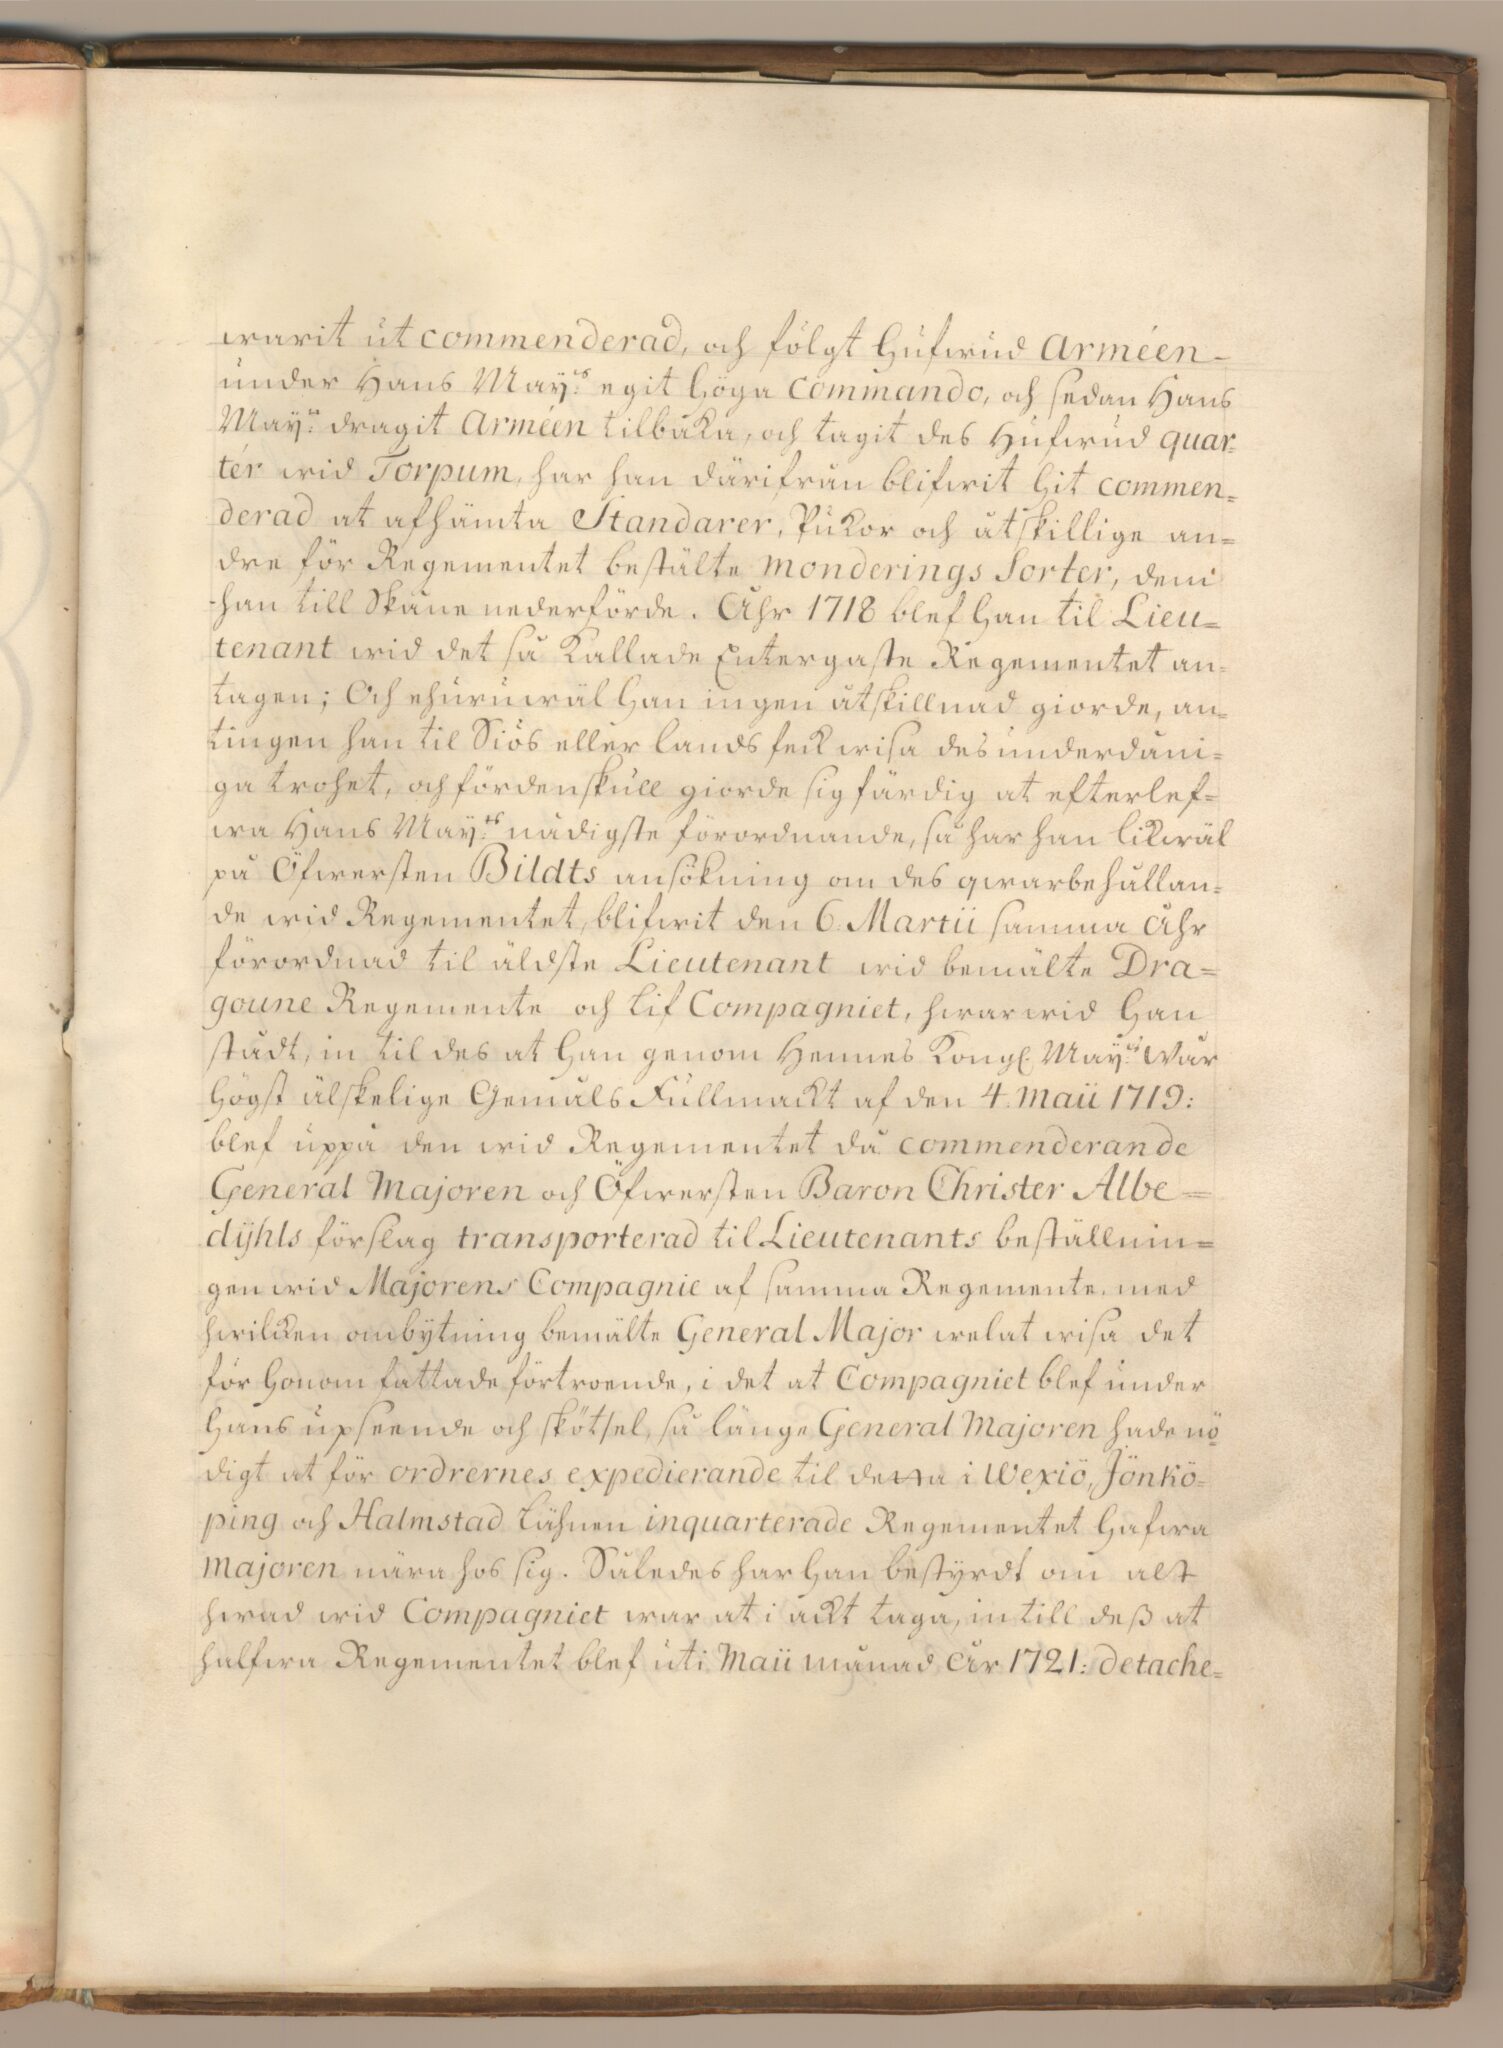 warit ut commenderad, och fölgt Hufwud Arméen
under Hans May:ts egit Höga Commando, och sedan Hans
May:tt dragit Arméen tilbaka, och tagit des Hufwud quar-
tér wid Torpum, har han därifrån blifwit hit commen=
derad at afhämta Standarer, Pukor och åtskillige an=
dre för Regementet bestälte monderings Sorter, dem
han till Skåne nederförde. Åhr 1718 blef Han til Lieu=
tenant wid det så kallade Entergaste Regementet an=
tagen; Och ehuruwäl Han ingen åtskillnad giorde, an=
tingen han til Siös eller lands feck wisa des underdåni=
ga trohet, och fördenskull giorde sig färdig at efterlef=
wa Hans May:ts nådigste förordnande, så har han likwäl
på Öfwersten Bildts ansökning om des qwarbehållan=
de wid Regementet, blifwit den 6. Martii samma åhr
förordnad til äldste Lieutenant wid bemälte Dra=
goune Regemente och Lif Compagniet, hwarwid Han
stådt, in til des at Han genom Hennes Kongl. May:ts Wår
Högst älskelige Gemåls Fullmackt af den 4. Maii 1719:
blef uppå den wid Regementet då commenderande
General Majoren och Öfwersten Baron Christer Albe=
dÿhls förslag transporterad til Lieutenants beställnin=
gen wid Majorens Compagnie af samma Regemente, med
hwilken ombytning bemälte General Major welat wisa det
för Honom fattade förtroende, i det at Compagniet blef under
Hans upseende och skötsel, så länge General Majoren hade nö
digt at för ordrernes expedierande til detta i Wexiö, Jönkö=
ping och Halmstad Lähnen inquarterade Regementet Hafwa
Majoren nära hos sig. Således har Han bestyrdt om alt
hwad wid Compagniet war at i ackt taga, in till deß at
halfwa Regementet blef uti Maii månad år 1721: detache=